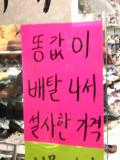 똥값이
배탈나서
설사한 가격